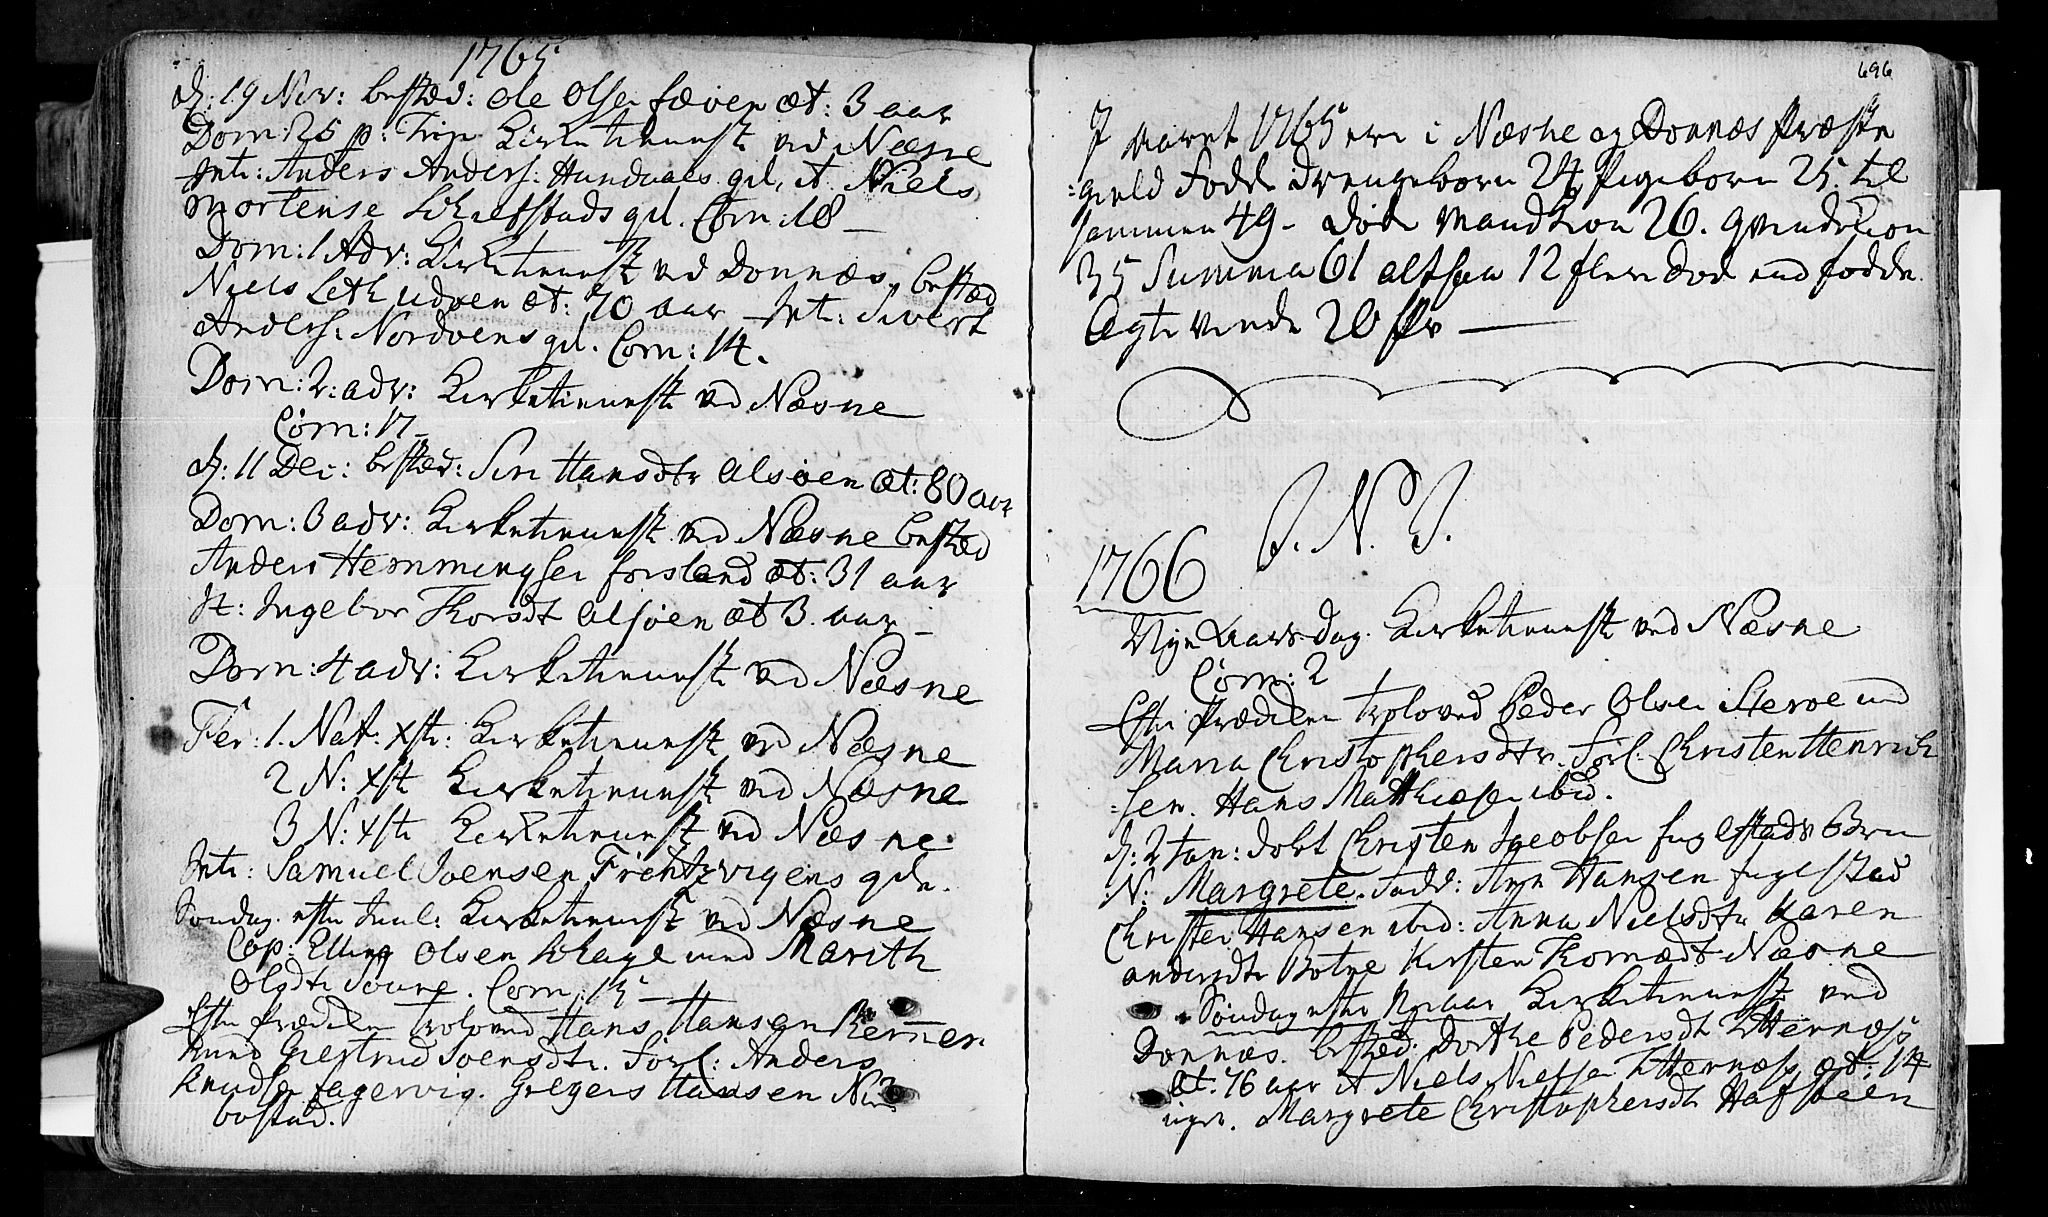 1765
d: 19 Nov: bested: Ole Olsen fæøen æt: 3 aar
Dom: 25 p: Trin Kirketieneste ved Næsne
Intr: Anders Anders: Hundvaals qd, it Niels
Mortense qd. Com: 18 –
Dom: 1 Adv: Kirketieneste ved Dønnæs, bested
Niels Leth udøen æt: 70 aar – Int: Sivert
Anders: Nordvens qd. Com: 14.
Dom: 2: adv: Kirketieneste ved Næsne
Com: 17 –
d: 11 Dec: bested: Siri Hansdtr Alsøen æt: 80 aar
Dom: 3 adv: Kirketieneste ved Næsne bested
Anders Hemmingsen forsland æt: 31 aar
It: Ingebor Thorsdt Alsøen æt 3. aar –
Dom: 4 adv: Kirketieneste ved Næsne
Fer: 1. Nat: Xsti: Kirketieneste ved Næsne
2 N: Xsti Kirketieneste ved Næsne
3 N: Xsti Kirketieneste ved Næsne.
Intr: Samuel Joensen qde.
Søndag efter Juul: Kirketieneste ved Næsne
Cop: Elling Olsen med Marith
Olsdtr Com: 15 –
Efter Prædiken troloved Hans Hansen
Giertrud Joensdtr. Forl: Anders
Knudsen fagervig. Gregers Hansen
bostad.
696
I Aaret 1765 ere i Næsne og Dønnæs Præste
=gield fødde drengebørn 24 Pigebørn 25 til
sammen 49 – døde Mandkion 26. Qvindekion
35 Summa 61 altsaa 12 flere død end fødde.
Ægteviede 20 Par –
J. N. J.
1766
Nye Aars dag. Kirketieneste ved Næsne
Com: 2
Efter Prædiken troloved Peder Olsen med
Maria Christophersdtr. Forl. Christen Henrich
=sen. Hans Matthiesen ibid.
d: 2 Jan: døbt Christen Jacobsen fuglestads Barn
N: Margrete. Fadd: Hansen fuglestad
Christen Hansen ibid: Anna Nielsdtr Karen
andersdtr Botne Kirsten Thomædt Næsne
Søndag efter Nyaar Kirketieneste ved
Dønnæs. bested: Dorthe Pedersdt
æt: 76 aar it Niels Nielsen æt: 14
uger. Margrete Christophersdt